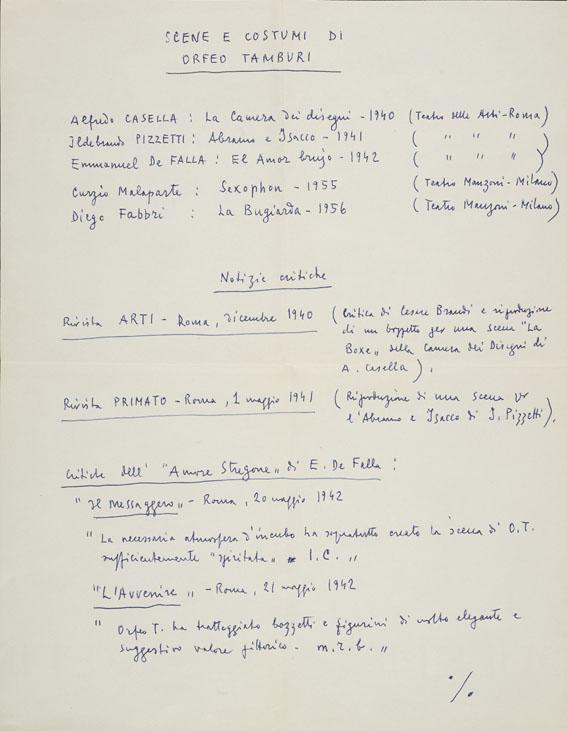 SCENE E COSTUMI DI
ORFEO TAMBURI
Alfredo CASELLA : La Camera dei disegni - 1940 (Teatro delle Arti - Roma)
Ildebrando PIZZETTI : Abramo e Isacco - 1941 ( " " " )
Emmanuel De FALLA : El Amor brujo - 1942 ( " " " )
Curzio Malaparte : Sexophon - 1955 (Teatro Manzoni - Milano)
Diego Fabbri : La Bugiarda - 1956 (Teatro Manzoni - Milano)
Notizie critiche
Rivista ARTI - Roma, dicembre 1940 (Critica di Cesare Brandi e riproduzione
di un bozzetto per una scena "La
Boxe" della Camera dei Disegni di
A. Casella),
Rivista PRIMATO - Roma, 1 maggio 1941 (Riproduzione di una scena per
l'Abramo e Isacco di I. Pizzetti).
Critiche dell' "Amore Stregone" di E. De Falla :
"Il Messaggero" - Roma, 20 maggio 1942
"La necessaria atmosfera d'incubo ha sopratutto creato la scena di O.T.
sufficientemente "spiritata" - I.C. "
"L'Avvenire" - Roma, 21 maggio 1942
" Orfeo T. ha tratteggiato bozzetti e figurini di molto elegante e
suggestivo valore pittorico - m.r.b. "
·/.